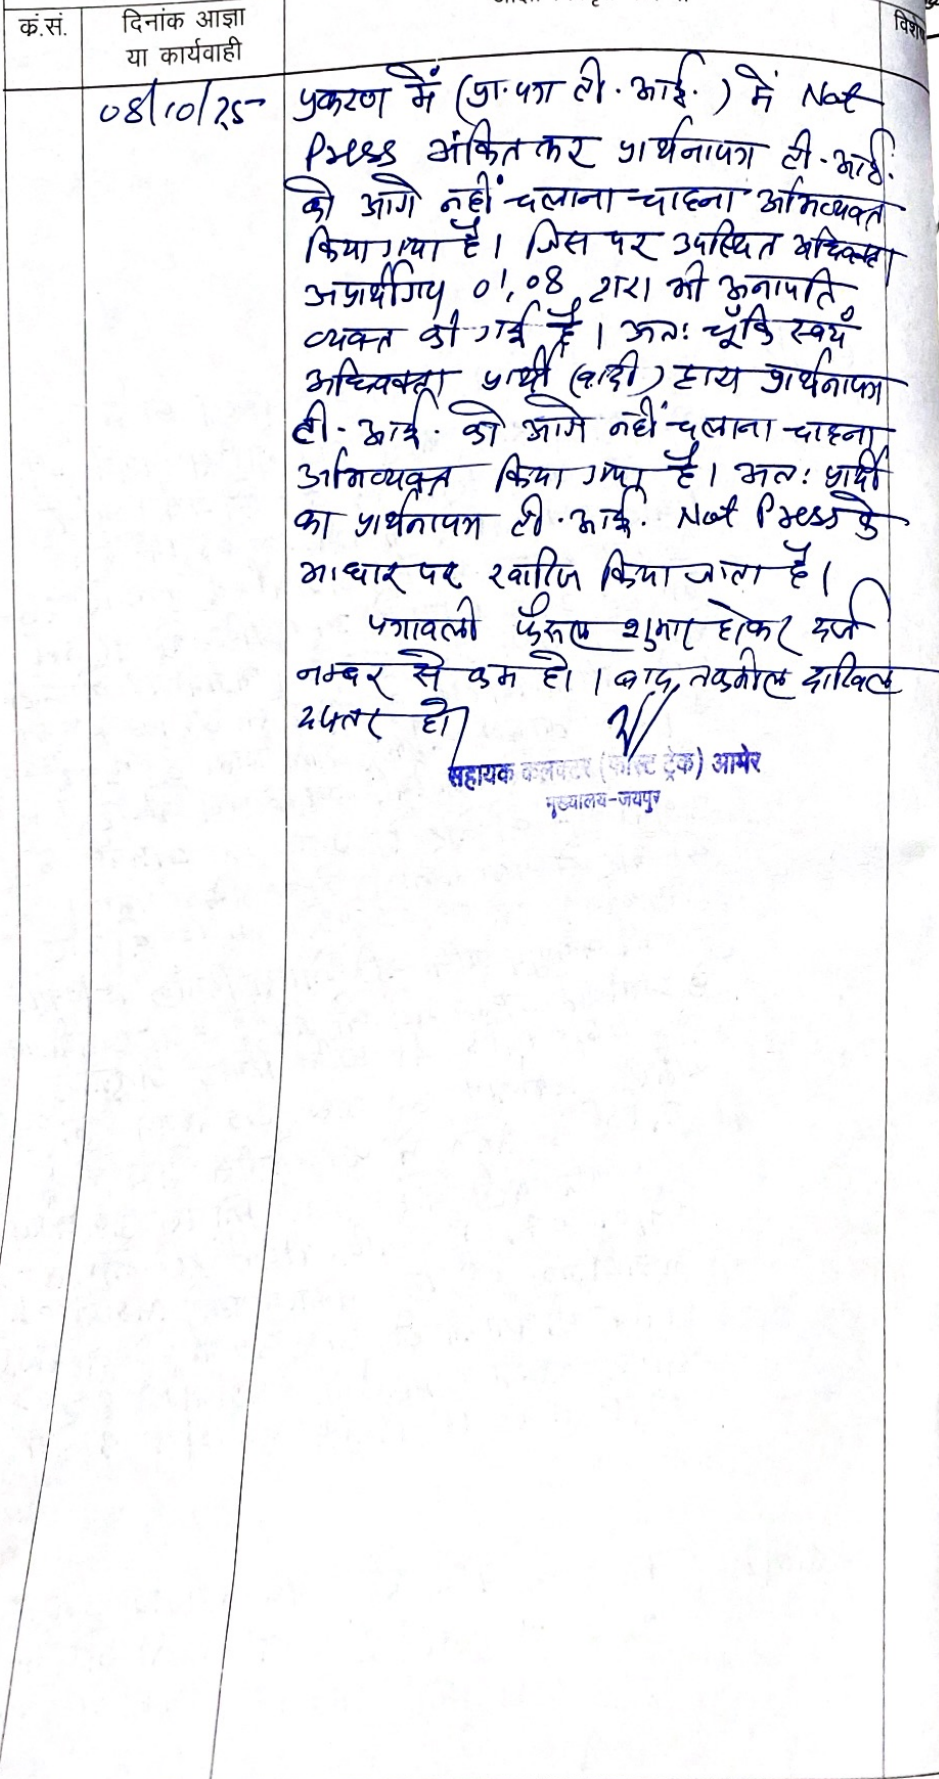 क्र.सं.
दिनांक आज्ञा
या कार्यवाही
विशे
08/10/25
प्रकरण में (प्रा.पत्र टी.आई.) में Not
Press अंकित कर प्रार्थनापत्र टी.आई.
को आगे नहीं चलाना चाहना अभिव्यक्त
किया गया है। जिस पर उपस्थित अधिवक्ता
अप्रार्थीगण 01,08 द्वारा भी अनापति
व्यक्त की गई है। अतः चूँकि स्वयं
अधिवक्ता प्रार्थी (वादी) द्वारा प्रार्थनापत्र
टी.आई. को आगे नहीं चलाना चाहना
अभिव्यक्त किया गया है। अतः प्रार्थी
का प्रार्थनापत्र टी.आई. Not Press के
आधार पर खारिज किया जाता है।
पत्रावली फैसल शुमार होकर दर्ज
नम्बर से कम हो। बाद तकमील दाखिल
दफ्तर हो।
सहायक कलक्टर (फास्ट ट्रेक) आमेर
मुख्यालय-जयपुर